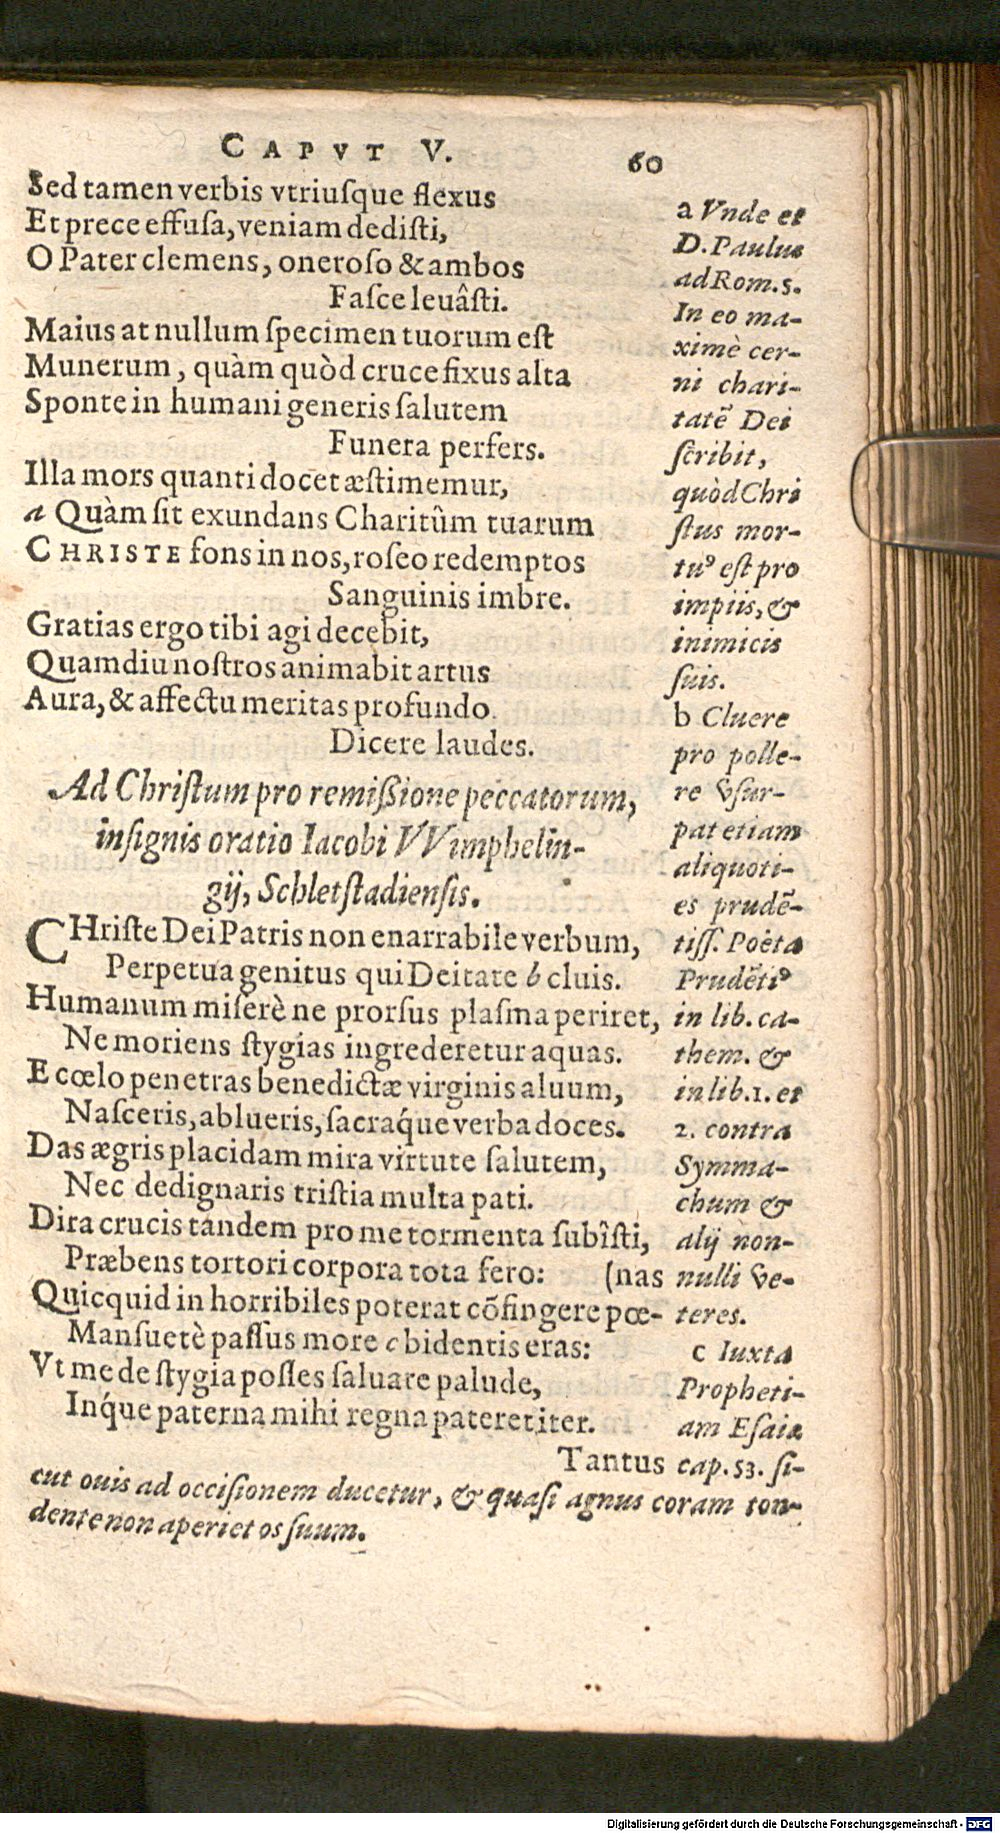 CAPVT V. 60
Sed tamen verbis vtriuſque flexus
Et prece effuſa, veniam dediſti,
O Pater clemens, oneroſo & ambos
Faſce leuâſti.
Maius at nullum ſpecimen tuorum eſt
Munerum, quàm quòd cruce fixus alta
Sponte in humani generis ſalutem
Funera perfers.
Illa mors quanti docet æſtimemur,
a Quàm ſit exundans Charitûm tuarum
CHRISTE fons in nos, roſeo redemptos
Sanguinis imbre.
Gratias ergo tibi agi decebit,
Quamdiu noſtros animabit artus
Aura, & affectu meritas profundo
Dicere laudes.
Ad Chriſtum pro remiſsione peccatorum,
inſignis oratio Iacobi VVimphelin-
gij, Schletſtadienſis.
CHriſte Dei Patris non enarrabile verbum,
Perpetua genitus qui Deitate b cluis.
Humanum miſerè ne prorſus plaſma periret,
Ne moriens ſtygias ingrederetur aquas.
E cœlo penetras benedictæ virginis aluum,
Naſceris, ablueris, ſacraq́ue verba doces.
Das ægris placidam mira virtute ſalutem,
Nec dedignaris triſtia multa pati.
Dira crucis tandem pro me tormenta ſubîſti,
Præbens tortori corpora tota fero: (nas
Quicquid in horribiles poterat cõfingere pœ-
Manſuetè paſſus more c bidentis eras:
Vt me de ſtygia poſſes ſaluare palude,
Inq́ue paterna mihi regna pateret iter.
Tantus
a Vnde et
D. Paulus
ad Rom. 5.
In eo ma-
ximè cer-
ni chari-
tatẽ Dei
ſcribit,
quòd Chri
ſtus mor-
tuꝰ eſt pro
impiis, &
inimicis
ſuis.
b Cluere
pro polle-
re vſur-
pat etiam
aliquoti-
es prudẽ-
tiſſ. Poëta
Prudẽtiꝰ
in lib. ca-
them. &
in lib. 1. et
2. contra
Symma-
chum &
alij non-
nulli ve-
teres.
c Iuxta
Propheti-
am Eſaiæ
cap. 53. ſi-
cut ouis ad occiſionem ducetur, & quaſi agnus coram ton-
dente non aperiet os ſuum.
Digitalisierung gefördert durch die Deutsche Forschungsgemeinschaft - DFG